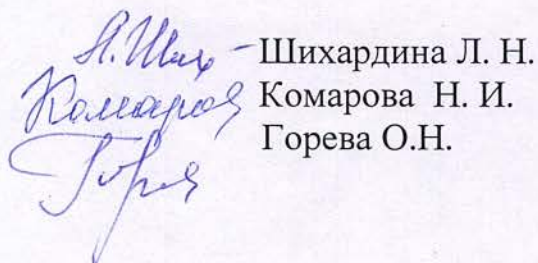 Л. Ших – Шихардина Л. Н.
Комаров Комарова Н. И.
Горева О.Н.